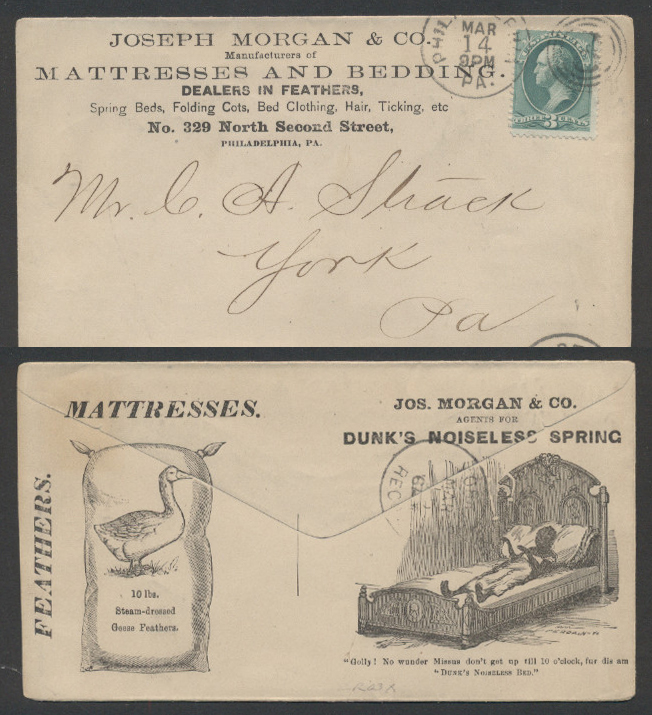 JOSEPH MORGAN & CO.
Manufacturers of
MATTRESSES AND BEDDING.
DEALERS IN FEATHERS,
Spring Beds, Folding Cots, Bed Clothing, Hair, Ticking, etc
No. 329 North Second Street,
PHILADELPHIA, PA.
MAR
14
9PM
PA.
3
CENTS
Mr. C. A. Strack
York
Pa
MATTRESSES.
FEATHERS.
10 lbs.
Steam-dressed
Geese Feathers.
JOS. MORGAN & CO.
AGENTS FOR
DUNK'S NOISELESS SPRING
REC
"Golly! No wunder Missus don't get up till 10 o'clock, fur dis am
"DUNK'S NOISELESS BED."